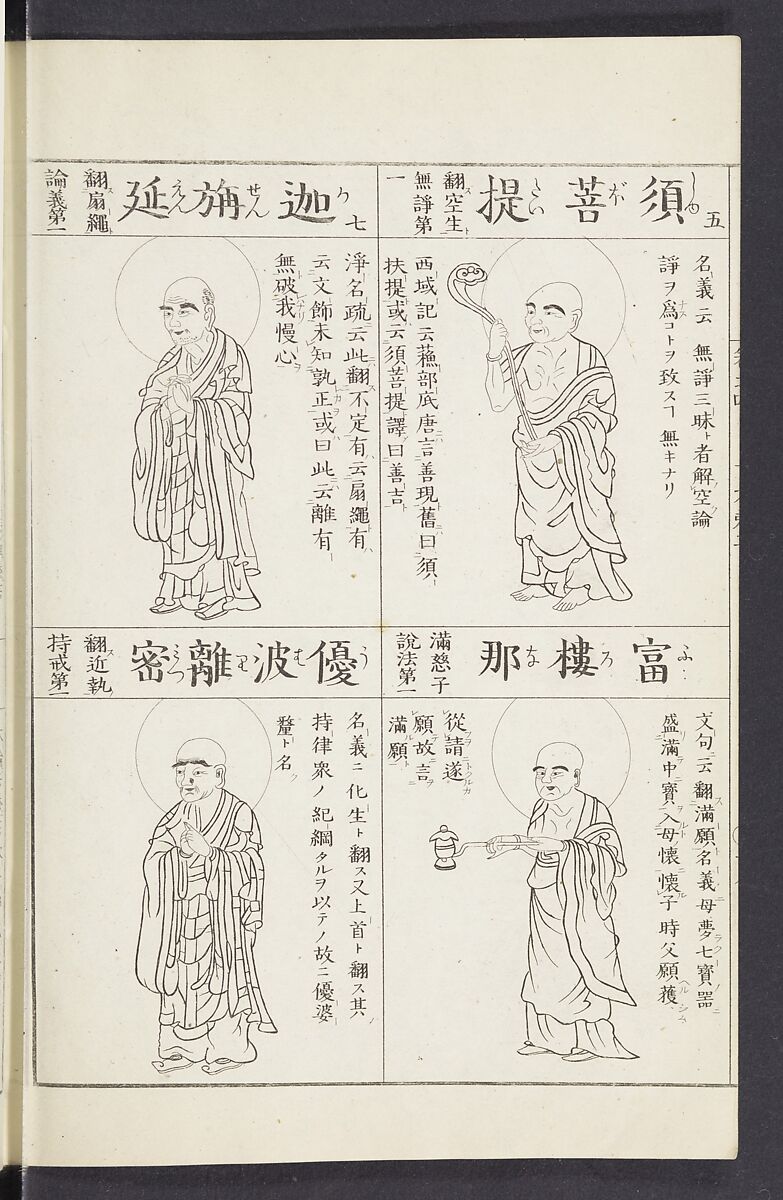 五
須菩提
しゆ ぼ だい
翻空生
無諍第
一
名義云無諍三昧ト者解空論
諍ヲ爲コトヲ致スヿ無キナリ
西域記云蘓部底唐言善現舊曰須
扶提或云須菩提譯曰善吉
富樓那
ふ ろ な
滿慈子
說法第一
文句云翻滿願名義母夢七寶器
盛滿中寶入母懷懷子時父願獲
從請遂
願故言
滿願
七
迦旃延
か せん えん
翻扇繩
論義第一
淨名疏云此翻不定有云扇繩有
云文飾未知孰正或曰此云離有
無破我慢心
優波離密
う は り みつ
翻近執
持戒第一
名義ニ化生ト翻ス又上首ト翻ス其
持律衆ノ紀綱タルヲ以テノ故ニ優婆
釐ト名